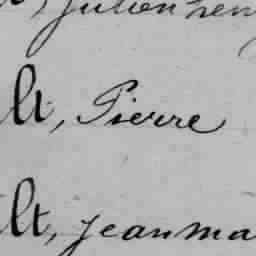 , Julien hen
lt, Pierre
lt, jeanma